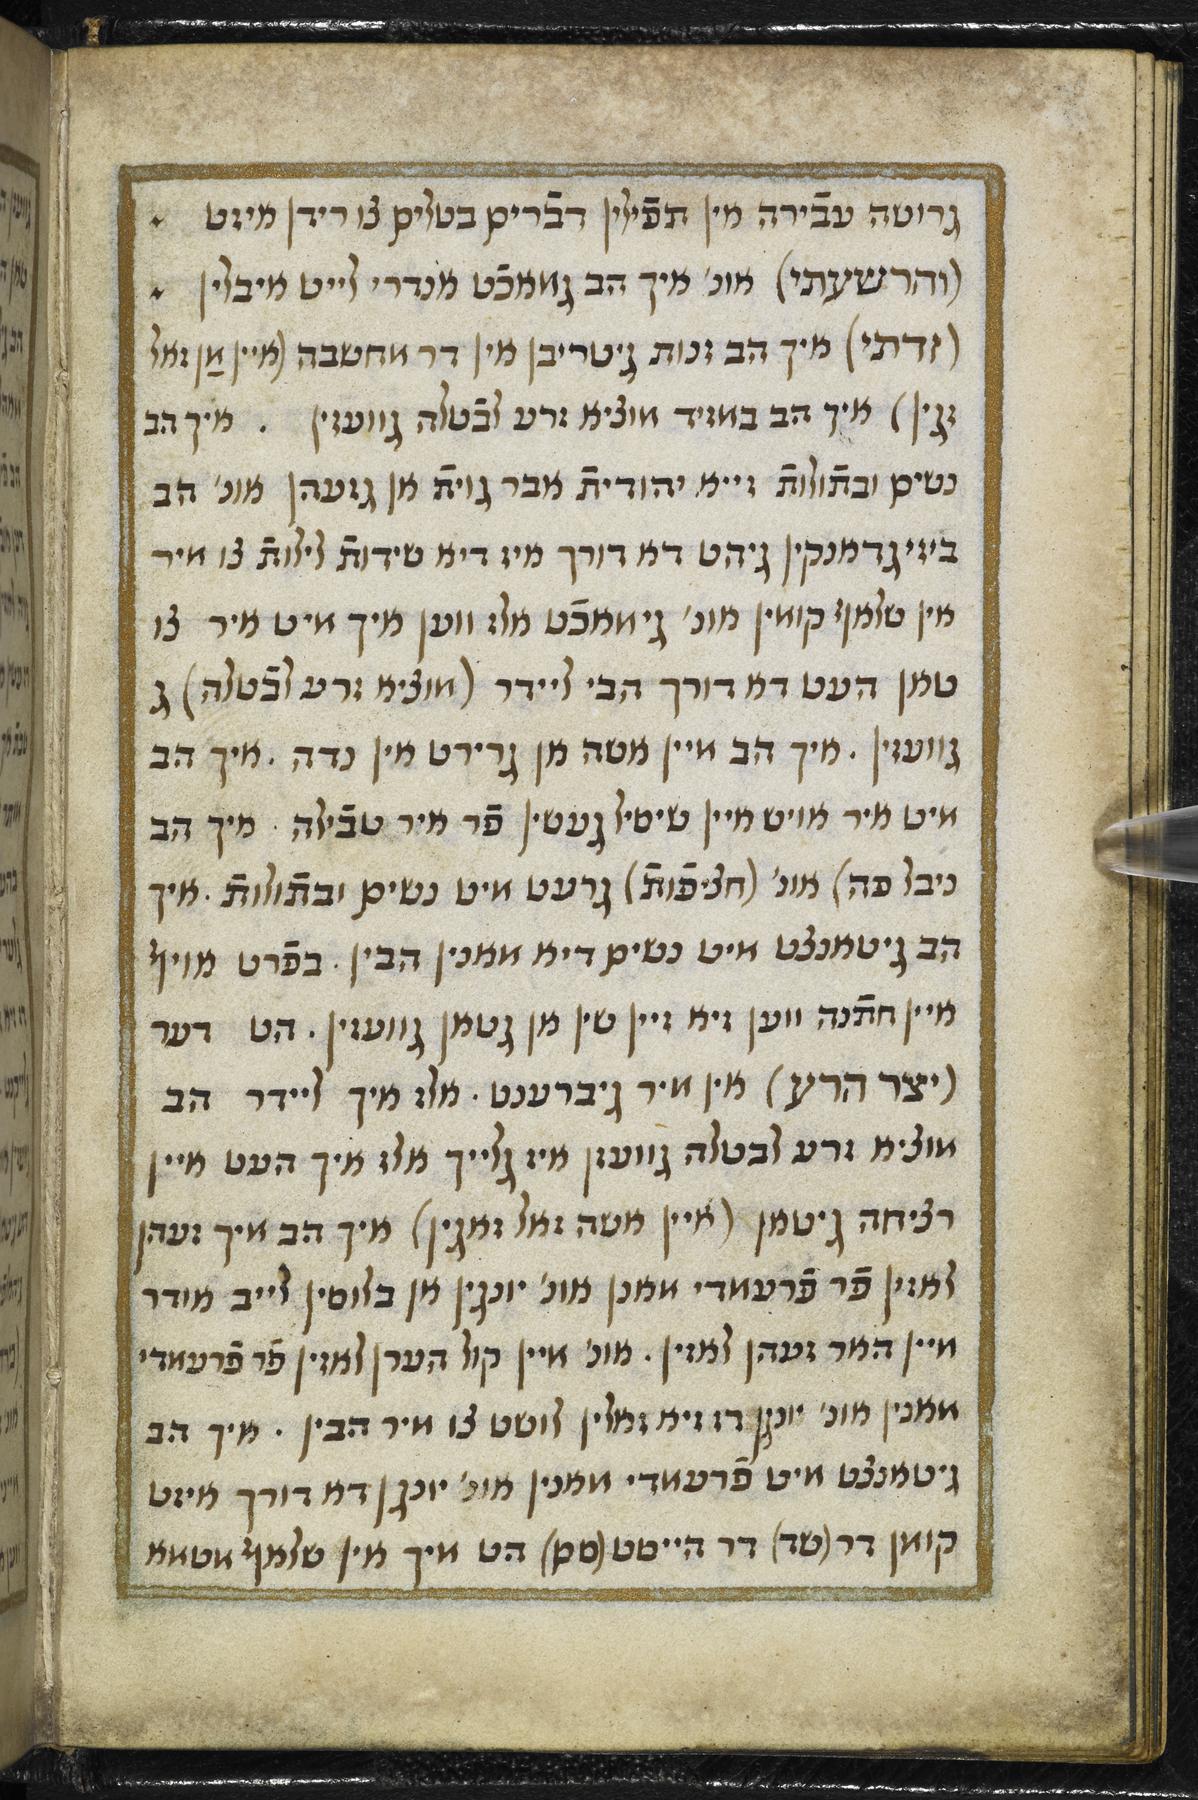 גרוסה עבֿירה אין תפֿילין דבֿרים בטלים צו רידן איזט
(והרשעתי) אונ' איך הב גמאכֿט אנדרי לייט איבלין
(זדתי) איך הב זנות גיטריבן אין דר מחשבה (איין מַן זאל
זגין) איך הב במזיד מוציא זרע לבֿטלה גוועזין . איך הב
נשים ובתֿולותֿ זייא יהודיתֿ אבר גויתֿ אן גזעהן אונ' הב
ביזי גדאנקין גיהט דא דורך איז דיא שידותֿ לילותֿ צו מיר
אין שלאף קומין אונ' גימאכֿט אלז ווען איך מיט איר צו
טאן העט דא דורך הבי ליידר (מוציא זרע לבֿטלה) ג
גוועזין . איך הב מיין אשה אן גרירט אין נדה . איך הב
מיט איר אויש איין שיסיל געסין פֿר איר טבֿילה . איך הב
ניבל פה) אונ' (חציפֿותֿ) גרעט מיט נשים ובתֿולותֿ . איך
הב גיטאנצט מיט נשים דיא מאנין הבין . בפֿרט אויף
איין חתֿנה ווען זיא זיין שין אן גטאן גוועזין . הט דער
(יצר הרע) אין מיר גיברענט . אלז איך ליידר הב
מוציא זרע לבטלה גוועזן איז גלייך אלז איך העט איין
רציחה גיטאן (איין אשה זאל זאגין) איך הב מיך זעהן
לאזין פֿר פֿרעמדי מאנן אונ' יונגין אן בלוסין לייב אודר
מיין האר זעהן לאזין . אונ' מיין קול הערן לאזין פֿר פֿרעמדי
מאנין אונ' יונגן דז זיא זאלין לוסט צו מיר הבין . איך הב
גיטאנצט מיט פֿרעמדי מאנין אונ' יונגן דא דורך איזט
קומן דר (שד) דר הייסט (סם) הט מיך אין שלאף מטמא